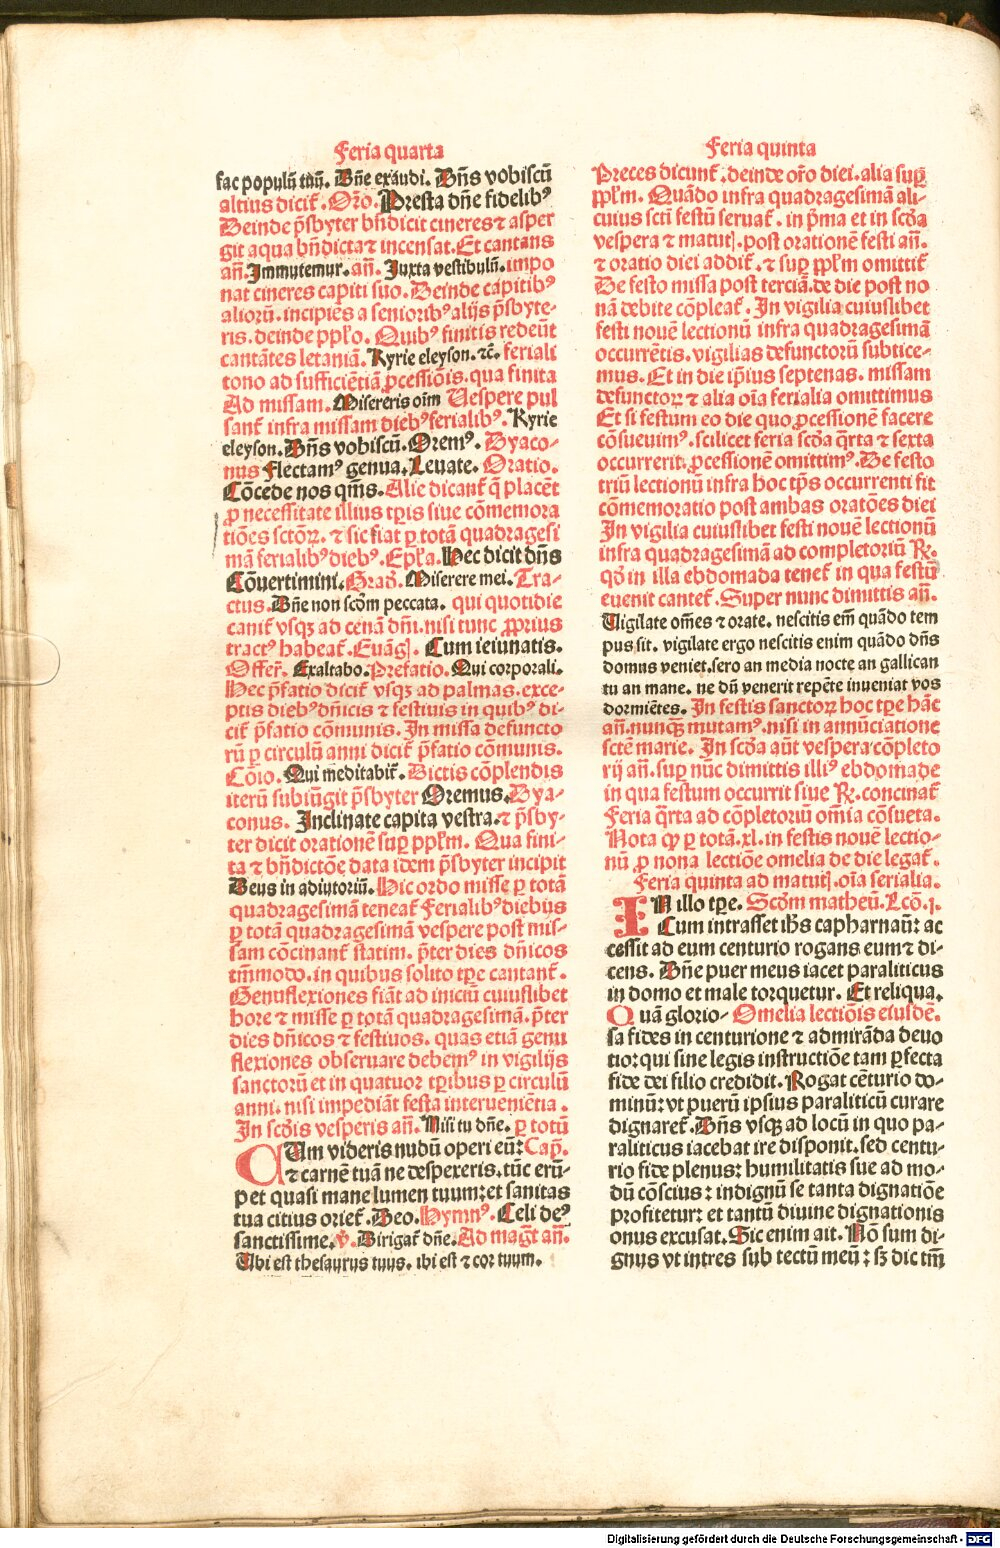 Feria quarta
fac populū tuū. Dn̄e exaudi. Dn̄s vobiscū
altius dicit᷑. Or̄o. Presta dn̄e fidelibꝰ
Deinde p̄sbyter bn̄dicit cineres ⁊ asper
git aqua bn̄dicta ⁊ incensat. Et cantans
an̄. Immutemur. an̄. Juxta vestibulū. impo
nat cineres capiti suo. Deinde capitibꝰ
alioꝝū. incipiēs a senioribꝰ alijs p̄sbyte-
ris. deinde pp̄lo. Quibꝰ finitis redeūt
cantātes letaniā. Kyrie eleyson. ⁊c̄. feriali
tono ad sufficiētiā ꝓcessiōis. qua finita
Ad missam. Misereris oīm Vespere pul
sant᷑ infra missam diebꝰ ferialibꝰ. Kyrie
eleyson. Dn̄s vobiscū. Oremꝰ. Dyaco-
nus Flectamꝰ genua. Leuate. Oratio.
Cōcede nos qm̄s. Alie dicant᷑ q̄ placēt
ꝓ necessitate illius tꝑis siue cōmemora
tiōes sctōꝝ. ⁊ sic fiat ꝑ totā quadragesi
mā ferialibꝰ diebꝰ. Ep̄la. Hec dicit dn̄s
Cōuertimini. Grad̄. Miserere mei. Tra-
ctus. Dn̄e non scd̄m peccata. qui quotidie
canit᷑ vsqꝫ ad cenā dn̄i. nisi tunc ꝓprius
tractꝰ habeat᷑. Euāgꝭ. Cum ieiunatis.
Offer̄. Exaltabo. Prefatio. Qui corporali.
Hec p̄fatio dicit᷑ vsqꝫ ad palmas. exce-
ptis diebꝰ dn̄icis ⁊ festiuis in quibꝰ di-
cit᷑ p̄fatio cōmunis. In missa defuncto
rū ꝑ circulū anni dicit᷑ p̄fatio cōmunis.
Cōio. Qui meditabit᷑. Dictis cōplendis
iterū subiūgit p̄sbyter Oremus. Dya-
conus. Inclinate capita vestra. ⁊ p̄sby-
ter dicit orationē suꝑ pp̄lm. Qua fini-
ta ⁊ bn̄dictōe data idem p̄sbyter incipit
Deus in adiutoriū. Hic ordo misse ꝑ totā
quadragesimā teneat᷑ ferialibꝰ diebus
ꝑ totā quadragesimā vespere post mis-
sam cōcinant᷑ statim. p̄ter dies dn̄icos
tm̄modo. in quibus solito tꝑe cantant᷑.
Genuflexiones fiāt ad iniciū cuiuslibet
hore ⁊ misse ꝑ totā quadragesimā. p̄ter
dies dn̄icos ⁊ festiuos. quas etiā genu
flexiones obseruare debemꝰ in vigilijs
sanctorū et in quatuor tꝑibus ꝑ circulū
anni. nisi impediāt festa interueniētia.
In scd̄is vesperis an̄. Nisi tu dn̄e. ꝑ totū
CUm videris nudū operi eū: Cap̄.
⁊ carnē tuā ne despexeris. tūc erū-
pet quasi mane lumen tuum: et sanitas
tua citius oriet᷑. Deo. Hymnꝰ. Celi deꝰ
sanctissime. ℣. Dirigat᷑ dn̄e. Ad maḡt an̄.
Ubi est thesaurus tuus. ibi est ⁊ cor tuum.
Feria quinta
Preces dicunt᷑. deinde or̄o diei. alia suꝑ
pp̄lm. Quādo infra quadragesimā ali-
cuius scti festū seruat᷑. in p̄ma et in scd̄a
vespera ⁊ matutꝭ. post orationē festi an̄.
⁊ oratio diei addit᷑. ⁊ suꝑ pp̄lm omittit᷑
De festo missa post terciā. de die post no
nā debite cōpleat᷑. In vigilia cuiuslibet
festi nouē lectionū infra quadragesimā
occurrētis. vigilias defunctorū subtice-
mus. Et in die ip̄ius septenas. missam
defunctoꝝ ⁊ alia oīa ferialia omittimus
Et si festum eo die quo ꝓcessionē facere
cōsueuimꝰ. scilicet feria scd̄a q̄rta ⁊ sexta
occurrerit. ꝓcessionē omittimꝰ. De festo
triū lectionū infra hoc tp̄s occurrenti fit
cōmemoratio post ambas oratōes diei
In vigilia cuiuslibet festi nouē lectionū
infra quadragesimā ad completoriū ℟.
qd̄ in illa ebdomada tenet᷑ in qua festū
euenit cantet᷑. Super nunc dimittis an̄.
Vigilate om̄es ⁊ orate. nescitis em̄ quādo tem
pus sit. vigilate ergo nescitis enim quādo dn̄s
domus veniet. sero an media nocte an gallican
tu an mane. ne dū venerit repēte inueniat vos
dormiētes. In festis sanctoꝝ hoc tꝑe hāc
an̄. nunqꝫ mutamꝰ. nisi in annūciatione
scte marie. In scd̄a aūt vespera cōpleto
rij an̄. suꝑ nūc dimittis illiꝰ ebdomade
in qua festum occurrit siue ℟. concinat᷑
Feria q̄rta ad cōpletoriū om̄ia cōsueta.
Nota ꝙ ꝑ totā. xl. in festis nouē lectio-
nū ꝓ nona lectiōe omelia de die legat᷑.
Feria quinta ad matutꝭ. oīa ferialia.
IN illo tꝑe. Scd̄m matheū. Lcō. j.
Cum intrasset ihs capharnaū: ac
cessit ad eum centurio rogans eum ⁊ di-
cens. Dn̄e puer meus iacet paraliticus
in domo et male torquetur. Et reliqua.
Quā glorio- Omelia lectiōis eiusdē.
sa fides in centurione ⁊ admirāda deuo
tio: qui sine legis instructiōe tam ꝑfecta
fide dei filio credidit. Rogat cēturio do-
minū: vt puerū ipsius paraliticū curare
dignaret᷑. Dn̄s vsqꝫ ad locū in quo pa-
raliticus iacebat ire disponit. sed centu-
rio fide plenus: humilitatis sue ad mo-
dū cōscius: indignū se tanta dignatiōe
profitetur: et tantū diuine dignationis
onus excusat. Sic enim ait. Nō sum di-
gnus vt intres sub tectū meū: sꝫ dic tm̄
Digitalisierung gefördert durch die Deutsche Forschungsgemeinschaft - DFG